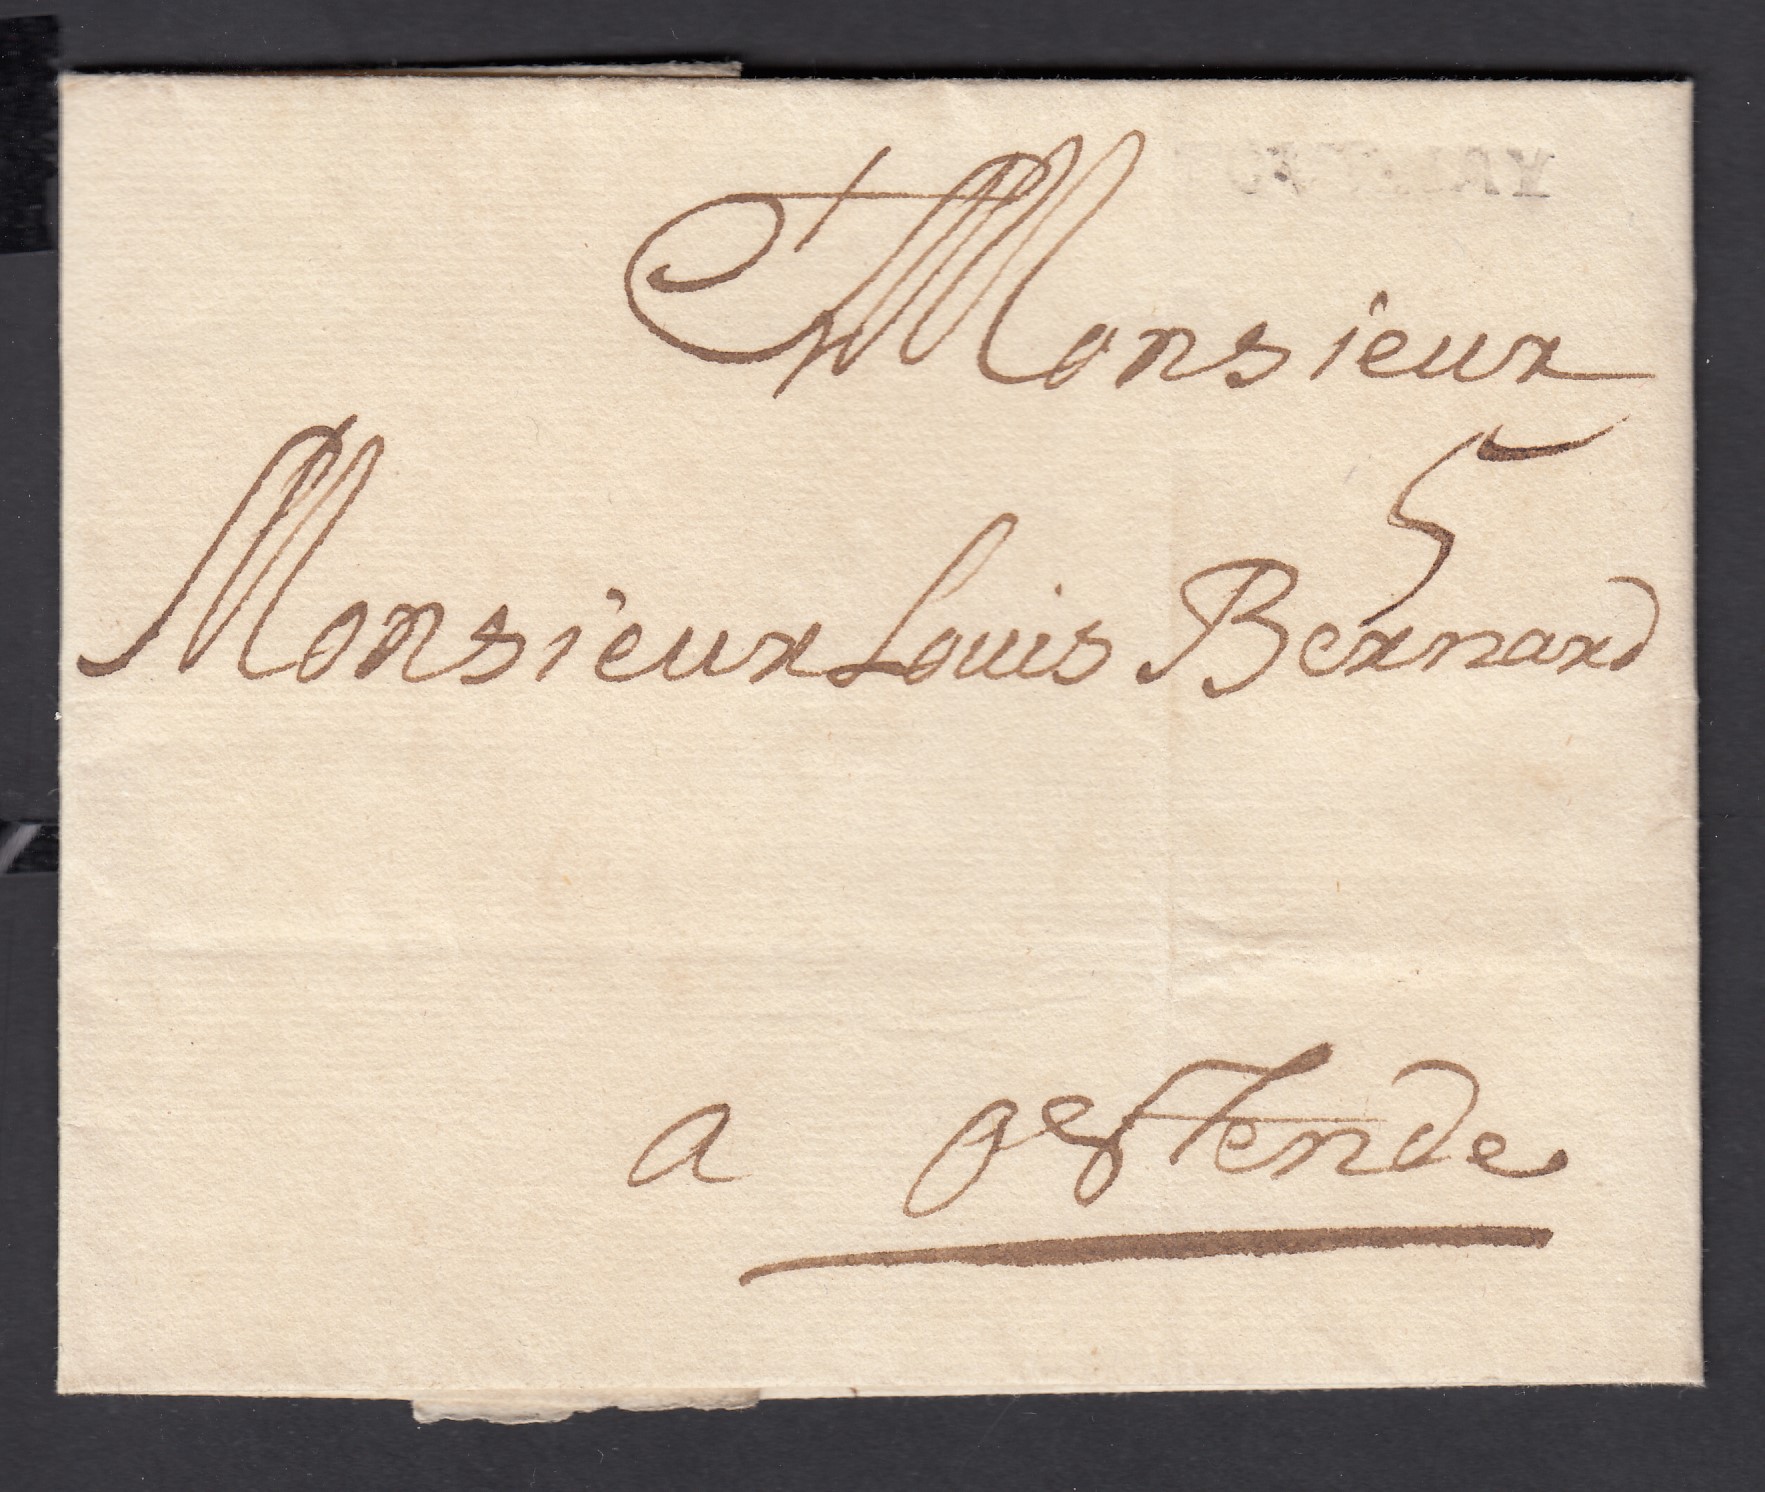 TOURNAY
Monsieur
5
Monsieur Louis Bernard
a ostende